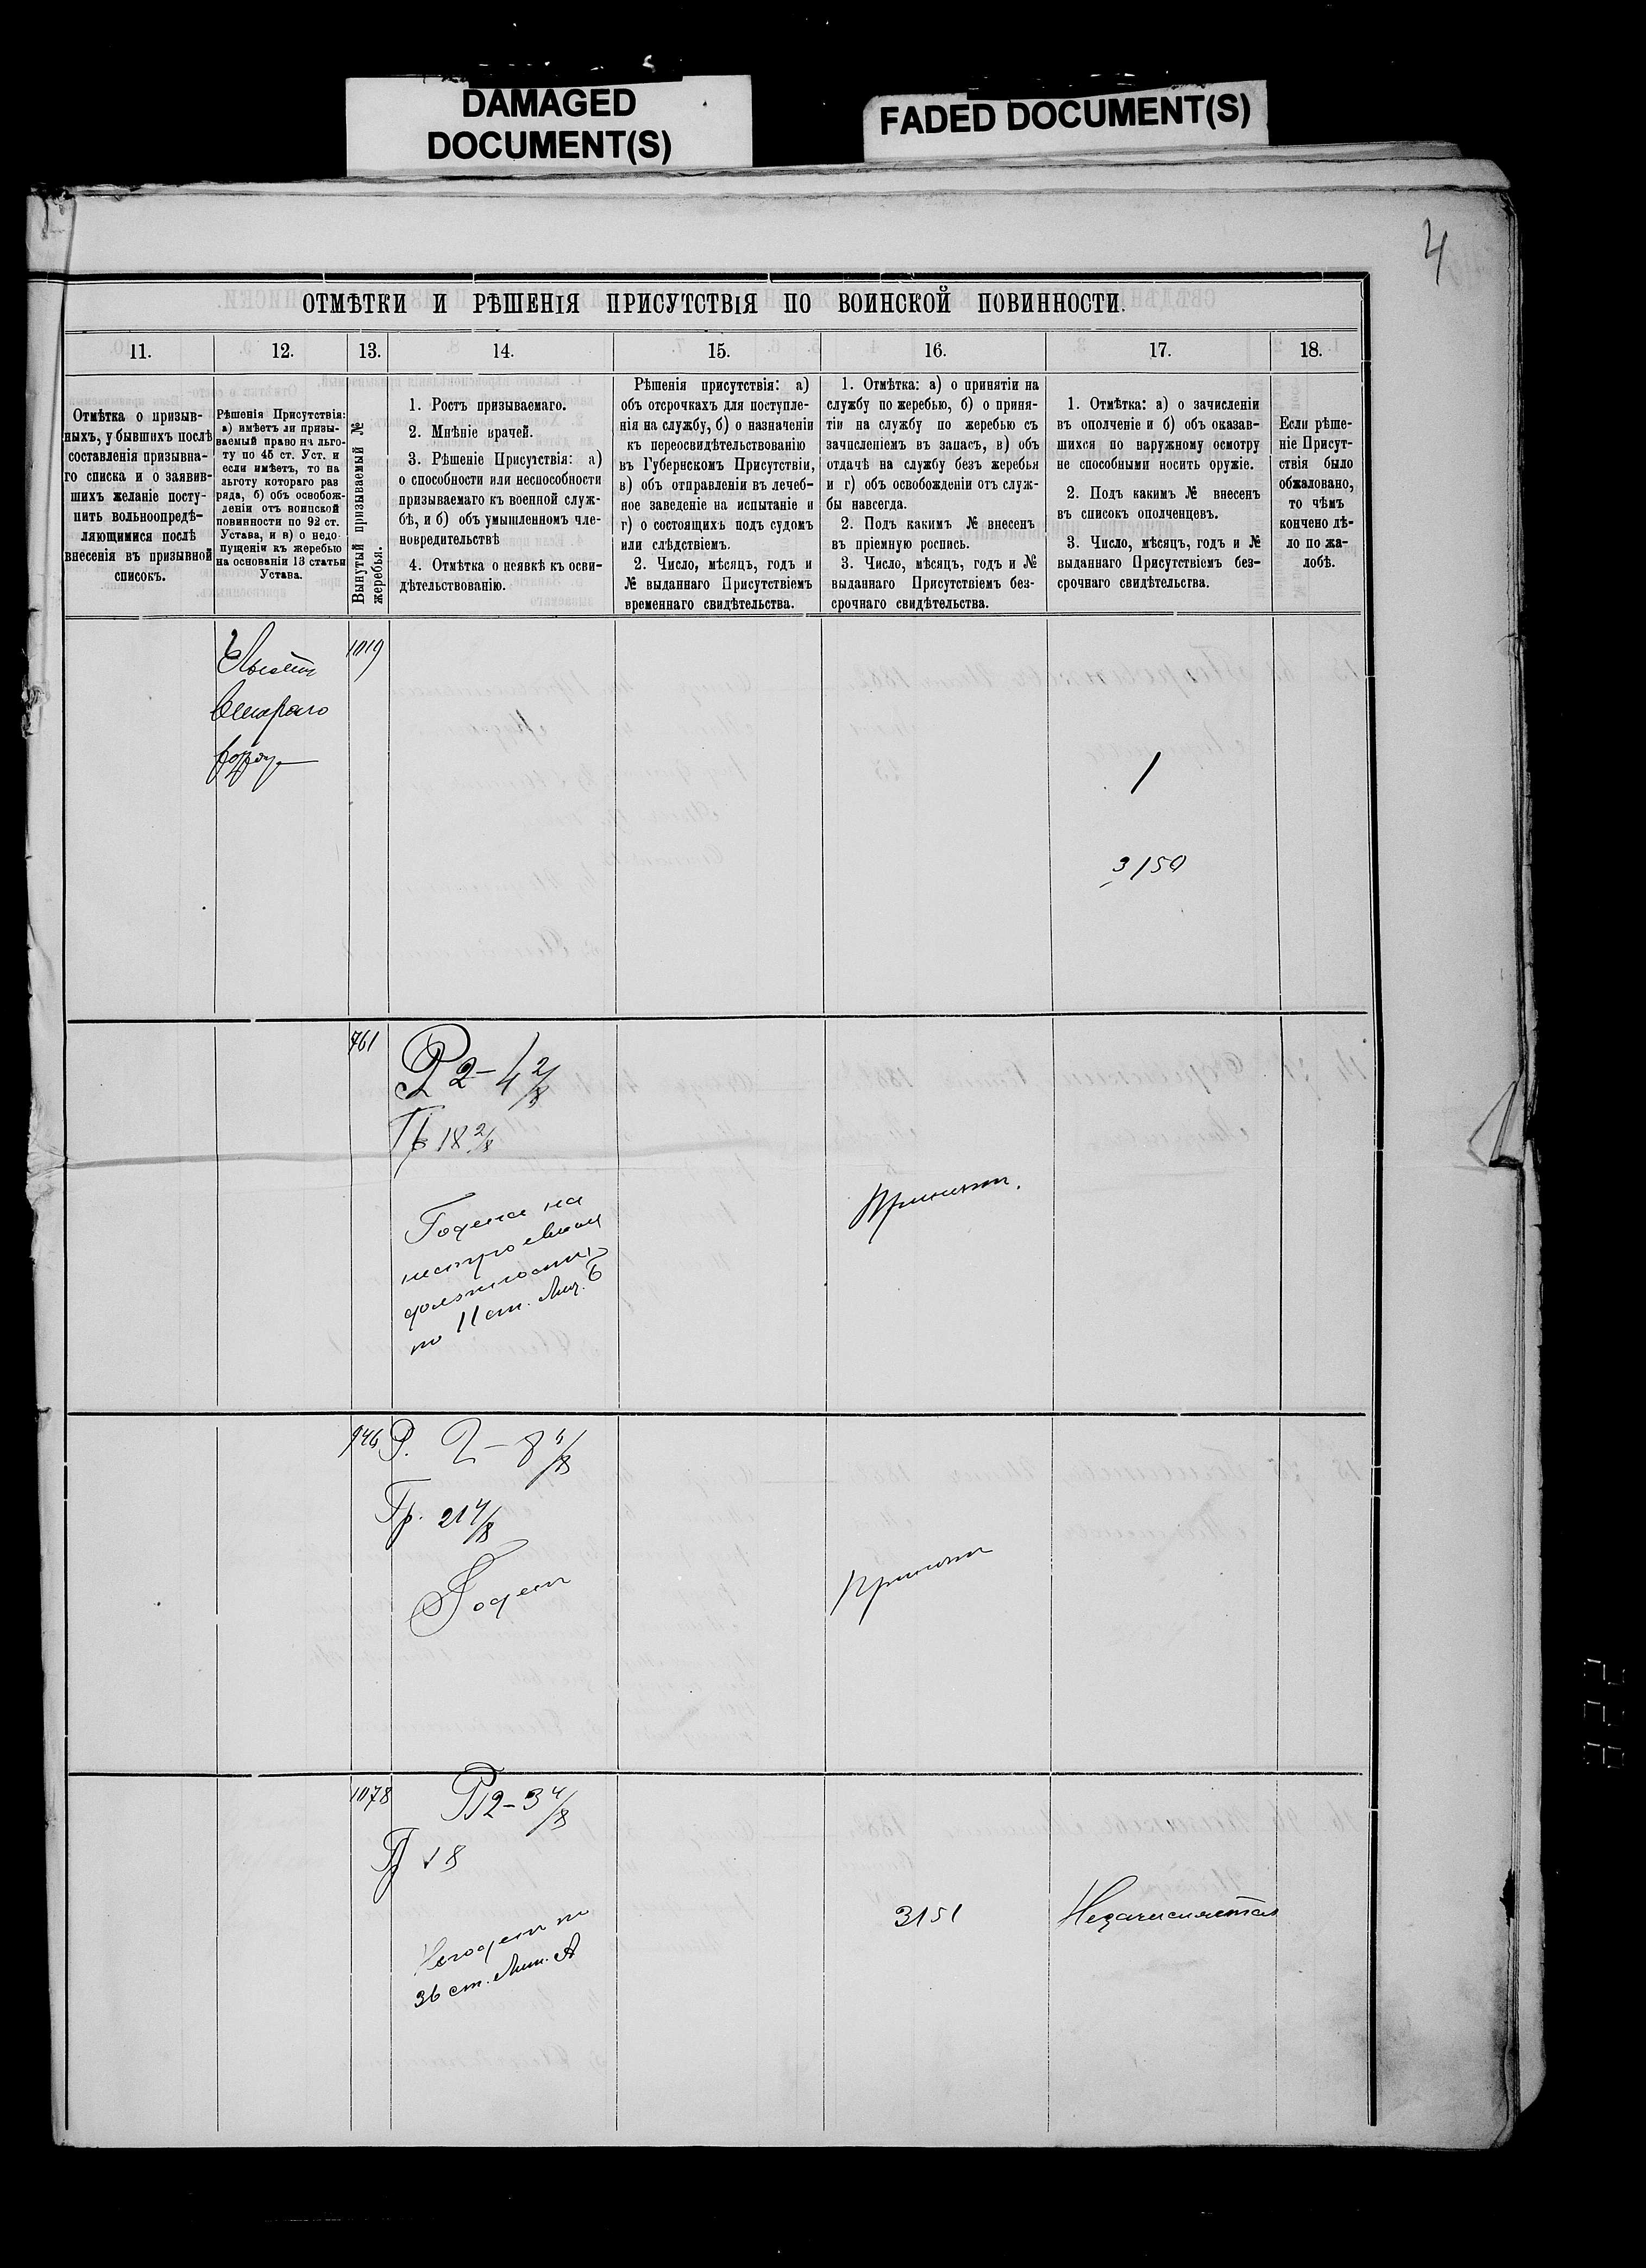 DAMAGED
DOCUMENT(S)
FADED DOCUMENT(S)
4
ОТМѢТКИ И РѢШЕНІЯ ПРИСУТСТВІЯ ПО ВОИНСКОЙ ПОВИННОСТИ.
11.
12.
13.
14.
15.
16.
17.
18.
Отмѣтка о призыв-
ныхъ, у бывшихъ послѣ
составленія призывна-
го списка и о заявив-
шихъ желаніе посту-
пить вольноопредѣ-
ляющимися послѣ
внесенія въ призывной
списокъ.
Рѣшенія Присутствія:
а) имѣетъ ли призы-
ваемый право на льго-
ту по 45 ст. Уст. и
если имѣетъ, то на
льготу котораго раз
ряда, б) объ освобож-
деніи отъ воинской
повинности по 92 ст.
Устава, и в) о недо-
пущеніи къ жеребью
на основаніи 13 статьи
Устава.
Вынутый призываемый №
жеребья.
1. Ростъ призываемаго.
2. Мнѣніе врачей.
3. Рѣшеніе Присутствія: а)
о способности или неспособности
призываемаго къ военной служ-
бѣ, и б) объ умышленномъ чле-
новредительствѣ
4. Отмѣтка о неявкѣ къ осви-
дѣтельствованію.
Рѣшенія присутствія: а)
объ отсрочкахъ для поступле-
нія на службу, б) о назначеніи
къ переосвидѣтельствованію
въ Губернскомъ Присутствіи,
в) объ отправленіи въ лечеб-
ное заведеніе на испытаніе и
г) о состоящихъ подъ судомъ
или слѣдствіемъ.
2. Число, мѣсяцъ, годъ и
№ выданнаго Присутствіемъ
временнаго свидѣтельства.
1. Отмѣтка: а) о принятіи на
службу по жеребью, б) о приня-
тіи на службу по жеребью съ
зачисленіемъ въ запасъ, в) объ
отдачѣ на службу безъ жеребья
и г) объ освобожденіи отъ служ-
бы навсегда.
2. Подъ какимъ № внесенъ
въ пріемную роспись.
3. Число, мѣсяцъ, годъ и №
выданнаго Присутствіемъ без-
срочнаго свидѣтельства.
1. Отмѣтка: а) о зачисленіи
въ ополченіе и б) объ оказав-
шихся по наружному осмотру
не способными носить оружіе.
2. Подъ какимъ № внесенъ
въ список ополченцевъ.
3. Число, мѣсяцъ, годъ и №
выданнаго Присутствіемъ без-
срочнаго свидѣтельства.
Если рѣше-
ніе Присут-
ствія было
обжаловано,
то чѣмъ
кончено дѣ-
ло по жа-
лобѣ.
1019
Втораго
1
3150
761
Р 2-4 2/8
Гр 18 2/8
Годенъ на
нестроевыя
должности
по 11 ст. Лит. Б
Принятъ.
946
Р. 2-8 6/8
Гр. 21 4/8
Годенъ
Принятъ
1078
Р 2-3 4/8
Гр 18
Негоденъ по
36 ст. Лит. А
3151
Незачисляется